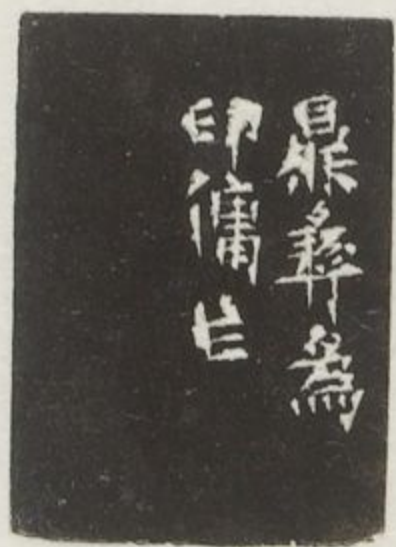 鼎彝為
印傭乍